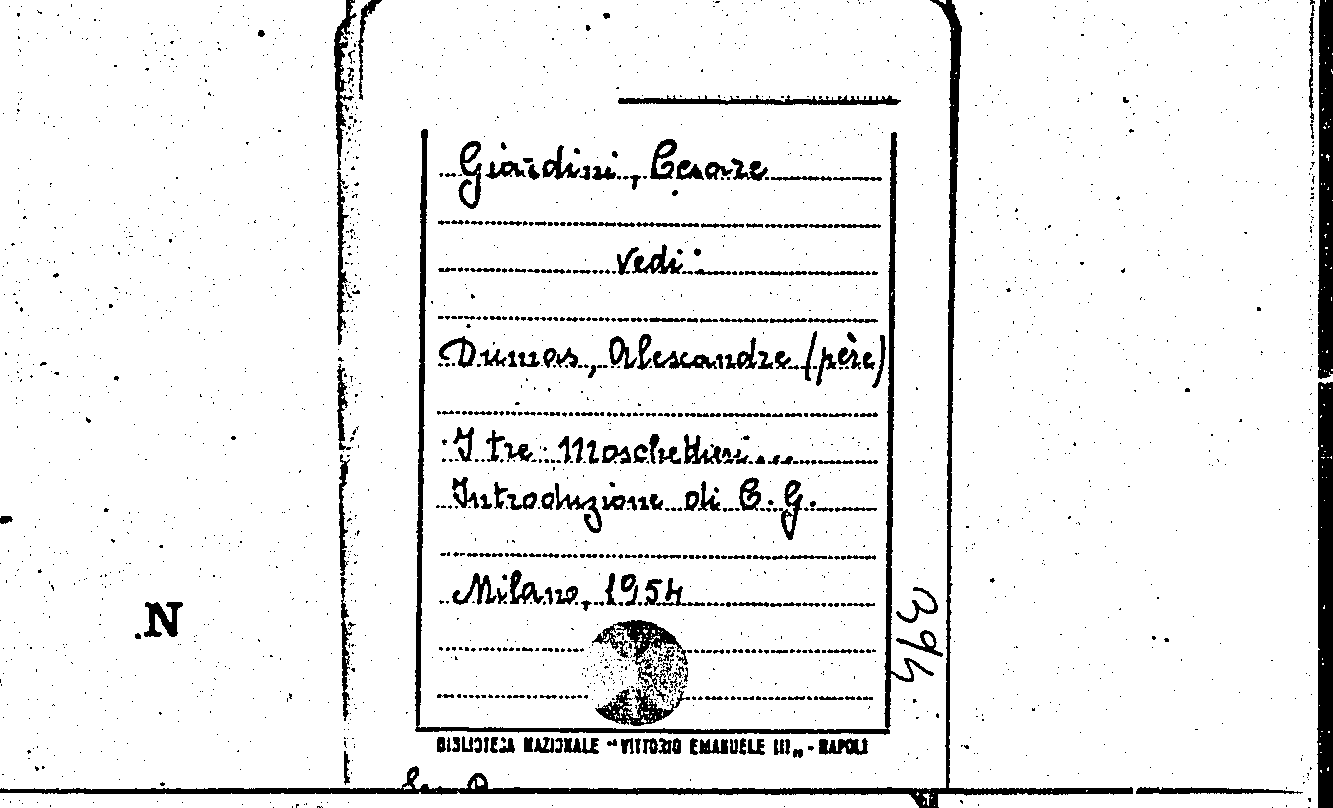 Giardini, Cesare
vedi:
Dumas, Alexandre (père)
I tre Moschettieri...
Introduzione di C. G.
Milano, 1954
394
N
BIBLIOTECA NAZIONALE "VITTORIO EMANUELE III" - NAPOLI